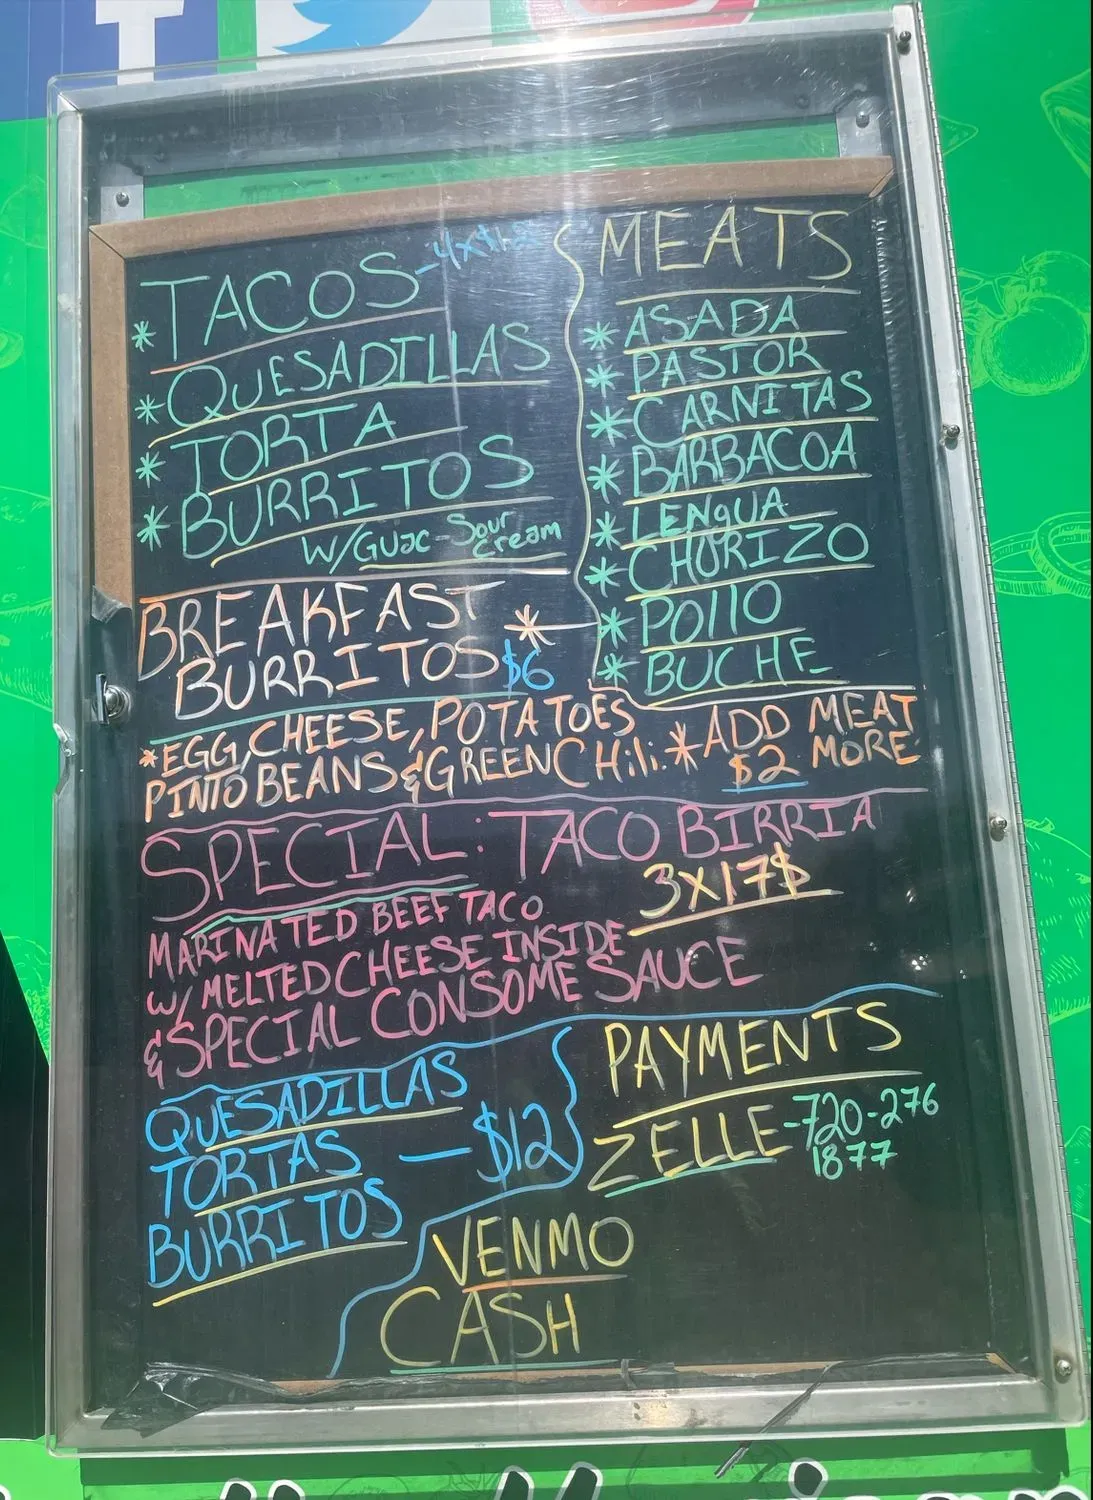 TACOS-4x$12
* QUESADILLAS
* TORTA
* BURRITOS
* W/Guac-Sour
Cream
MEATS
* ASADA
* PASTOR
* CARNITAS
* BARBACOA
* LENGUA
* CHORIZO
* POllO
* BUCHE
BREAKFAST *
BURRITOS $6
*EGG, CHEESE, POTATOES
PINTO BEANS & GREEN CHili.
*ADD MEAT
$2 MORE
SPECIAL: TACO BIRRIA
3X17$
MARINATED BEEF TACO
W/ MELTED CHEESE INSIDE
& SPECIAL CONSOME SAUCE
QUESADILLAS
TORTAS — $12
BURRITOS
PAYMENTS
ZELLE-720-276
1877
VENMO
CASH